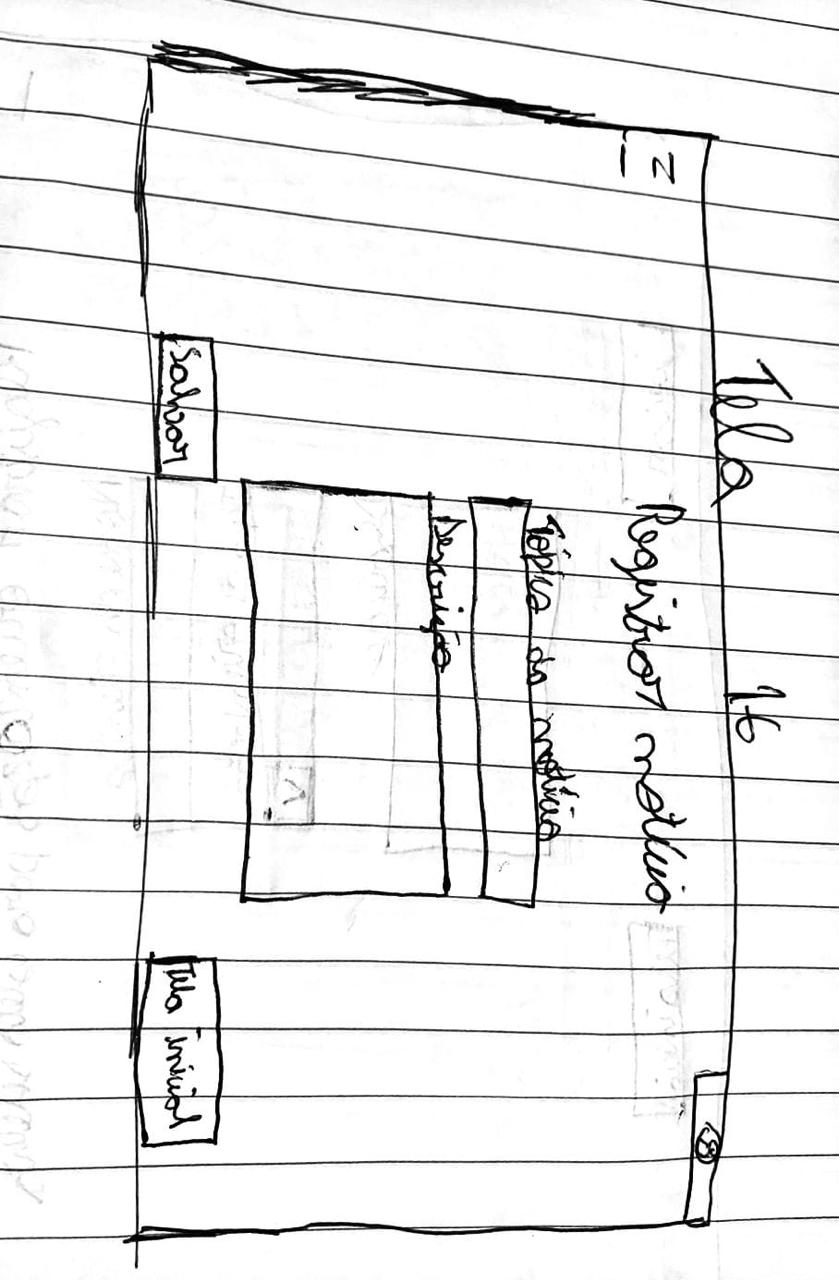 Tela 16
Registrar notícia
Tópico da notícia
Descrição
Salvar
Tela inicial